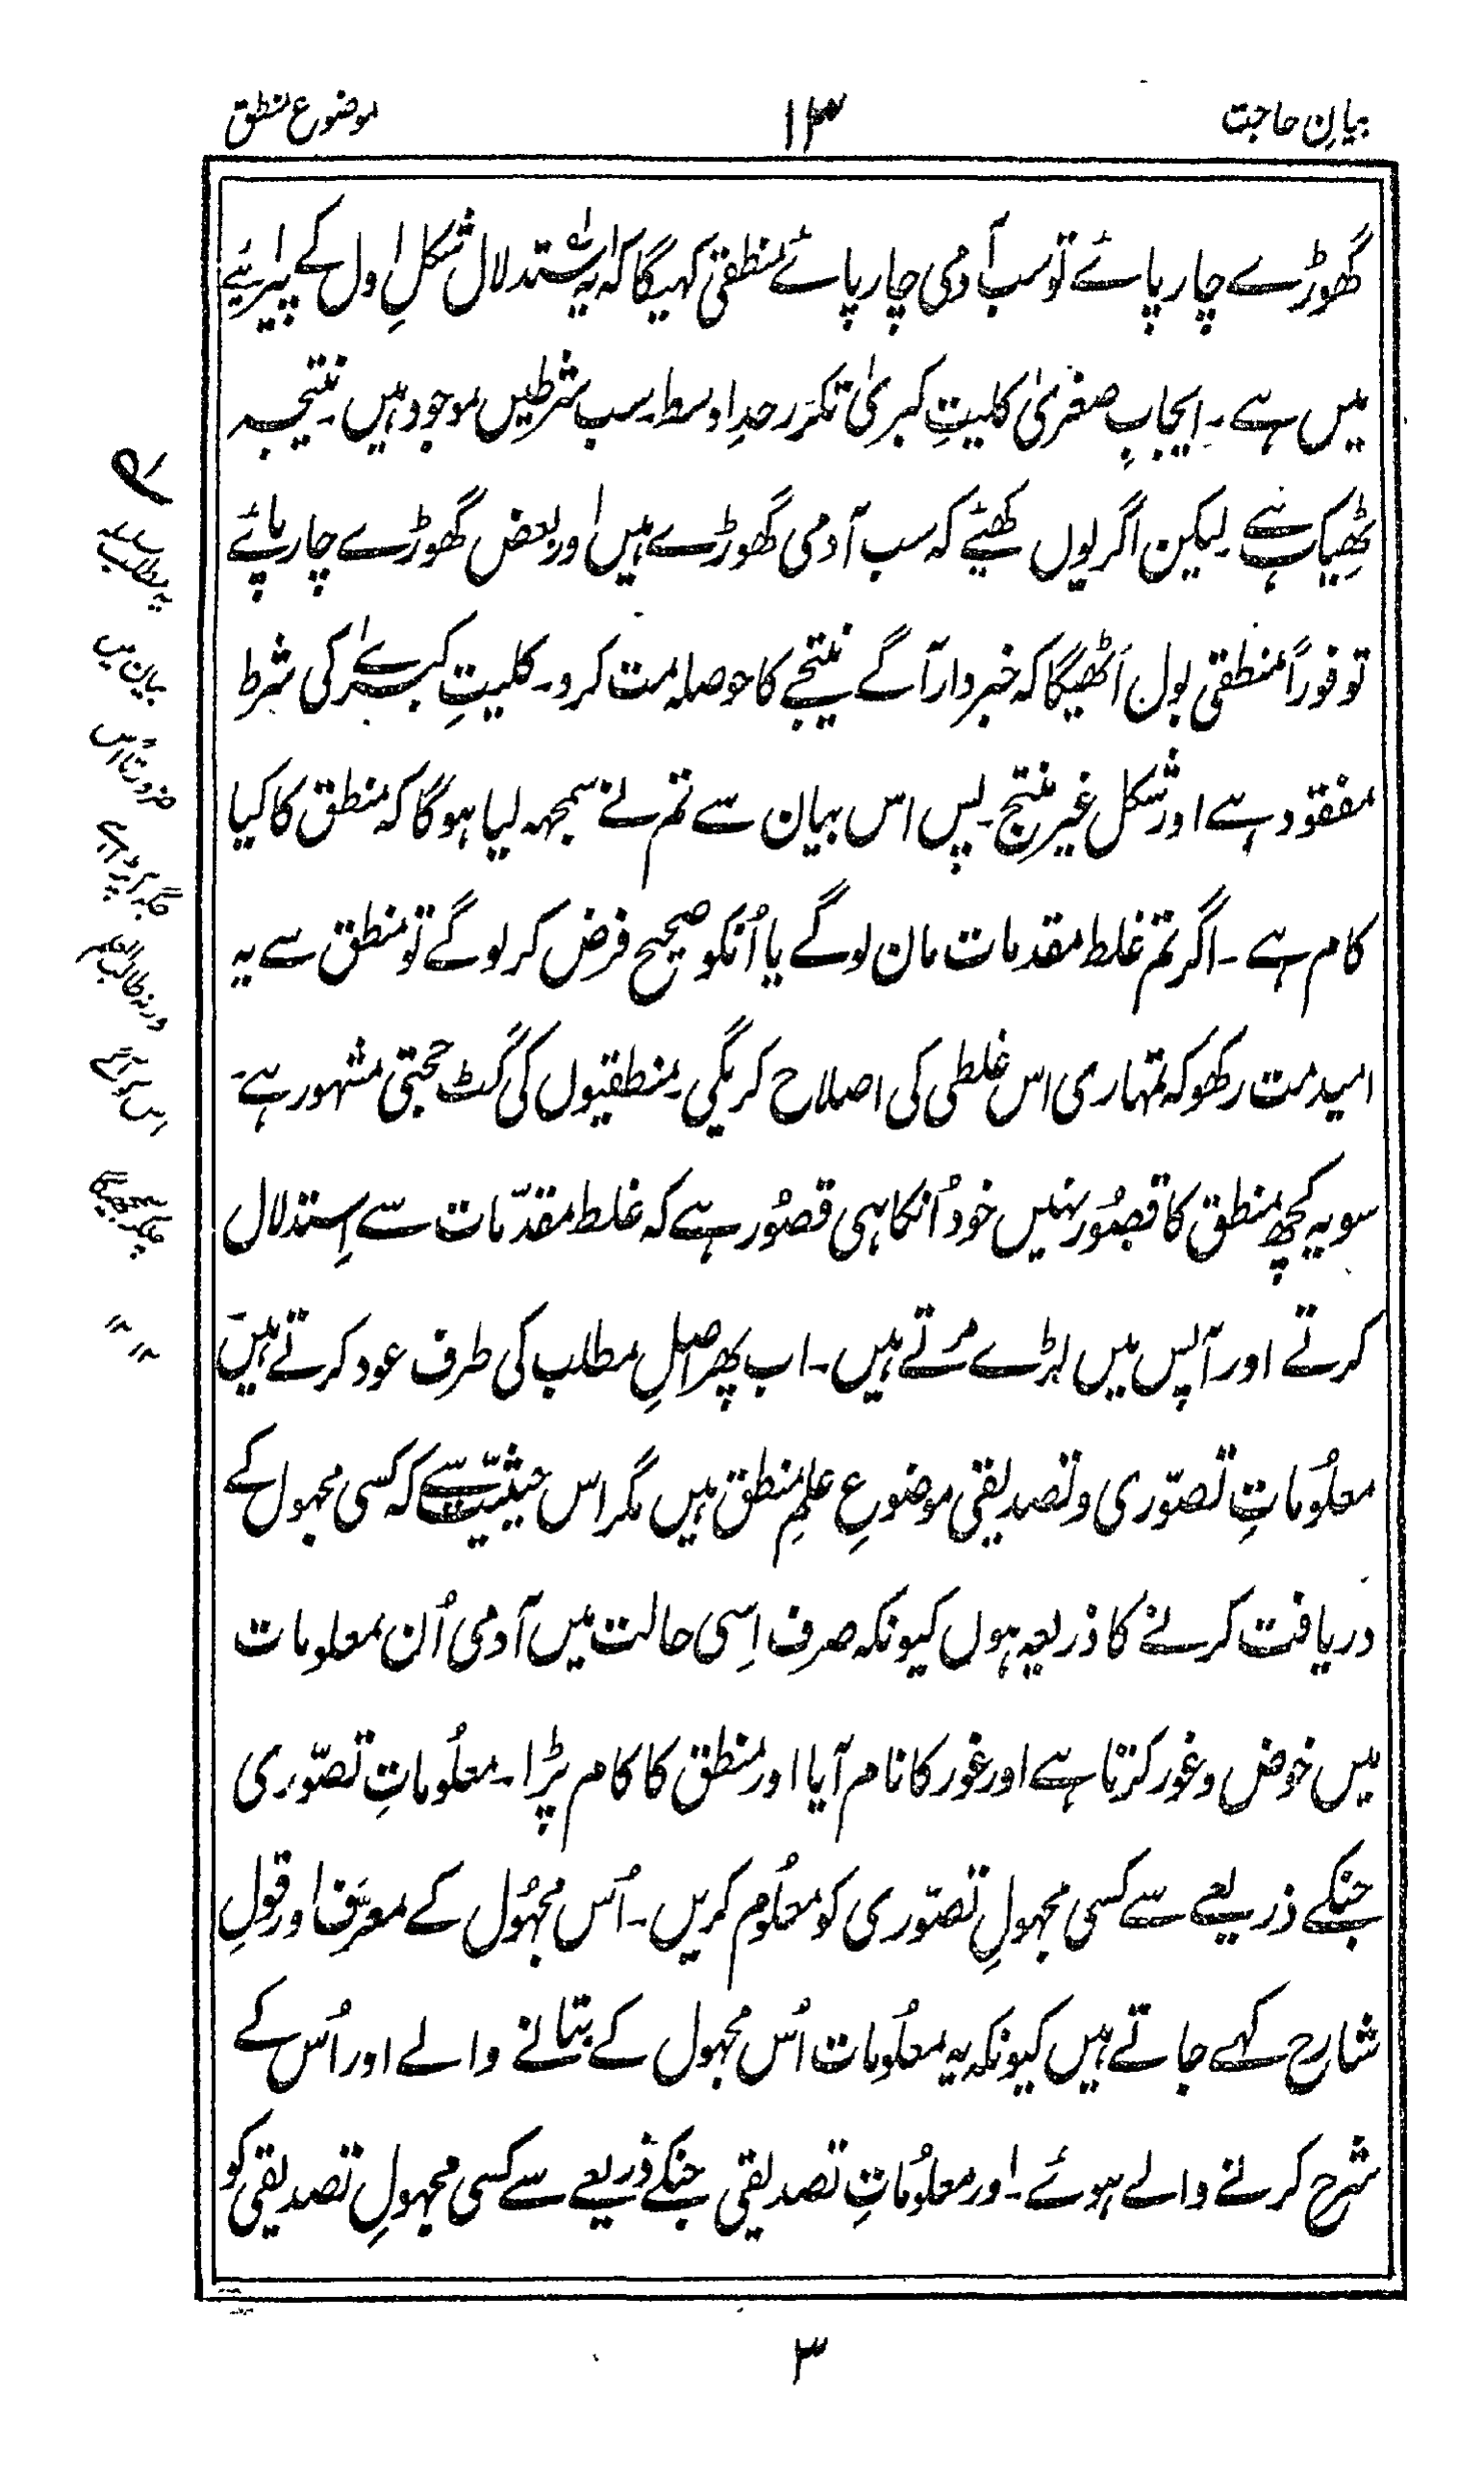 بیانِ حاجت
۱۳
موضوع منطق
گھوڑے چارپائے تو سب آدمی چارپائے منطقی کہیگا کہ یہ استدلال شکلِ اول کے پیرائیے
میں ہے۔ ایجابِ صغریٰ کلیتِ کبریٰ تکرّر حدِ اوسط۔ سب شرطیں موجود ہیں۔ نتیجہ
ٹھیک ہے۔ لیکن اگر یوں کہئیے کہ سب آدمی گھوڑے ہیں اور بعض گھوڑے چارپائے
تو فوراً منطقی بول اُٹھیگا کہ خبردار آگے نتیجے کا حوصلہ مت کرو۔ کلیتِ کبریٰ کی شرط
مفقود ہے اور شکل غیر منتج۔ پس اس بیان سے تم نے سمجھ لیا ہوگا کہ منطق کا کیا
کام ہے۔ اگر تم غلط مقدمات مان لوگے یا اُنکو صحیح فرض کر لوگے تو منطق سے یہ
امید مت رکھو کہ تمہاری اس غلطی کی اصلاح کریگی۔ منطقیوں کی کٹ حجتی مشہور ہے۔
سو یہ کچھ منطق کا قصُور نہیں خود اُنکا ہی قصُور ہے کہ غلط مقدّمات سے اِستدلال
کرتے اور آپس میں لڑے مرتے ہیں۔ اب پھر اصلِ مطلب کی طرف عود کرتے ہیں۔
معلُوماتِ تصوّری و تصدیقی موضوعِ علمِ منطق ہیں مگر اس حیثیّت سے کہ کسی مجہول کے
دریافت کرنے کا ذریعہ ہوں کیونکہ صرف اِسی حالت میں آدمی اُن معلومات
میں خوض و غور کرتا ہے اور غور کا نام آیا اور منطق کا کام پڑا۔ معلُوماتِ تصوّری
جنکے ذریعے سے کسی مجہولِ تصوّری کو معلُوم کریں۔ اُس مجہُول کے معرِّف اور قولِ
شارح کہے جاتے ہیں کیونکہ یہ معلُومات اُس مجہول کے بتانے والے اور اُس کے
شرح کرنے والے ہوئے۔ اور معلُوماتِ تصدیقی جنکے ذریعے سے کسی مجہولِ تصدیقی کو
یہ مطالب
بیان میں
ضرورتاً اس
جگہ آ پڑے
ورنہ طالب العلم
اس کو آگے
چلکر سمجھیگا
۱۲ ۱۲
۳